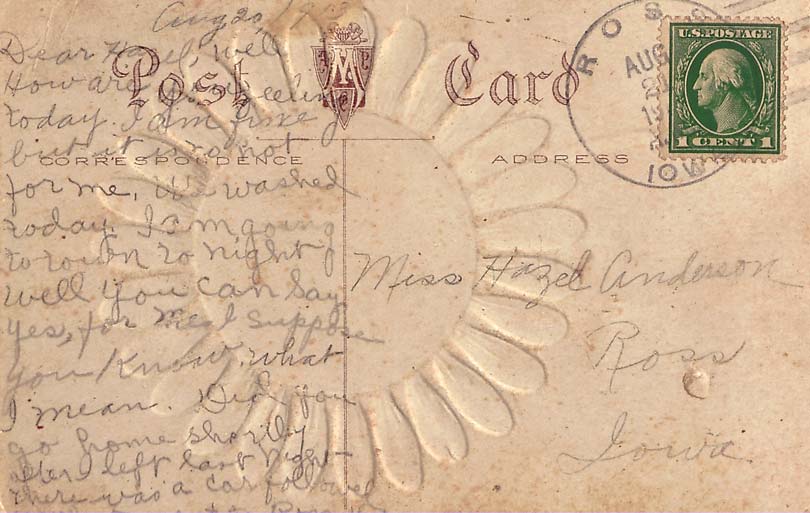 Aug 20, 19
Dear Hazel, Well
How are you feeling
today. I am fine
but it is to hot
for me, We washed
today. I am going
to town to night
Well you can say
yes, for me I suppose
you know what
I mean. Did you
go home shortly
after I left last night
there was a car followed
Post Card
CORRESPONDENCE
ADDRESS
ROSS
AUG
IOWA
U.S. POSTAGE
1 CENT 1
Miss Hazel Anderson
Ross
Iowa.